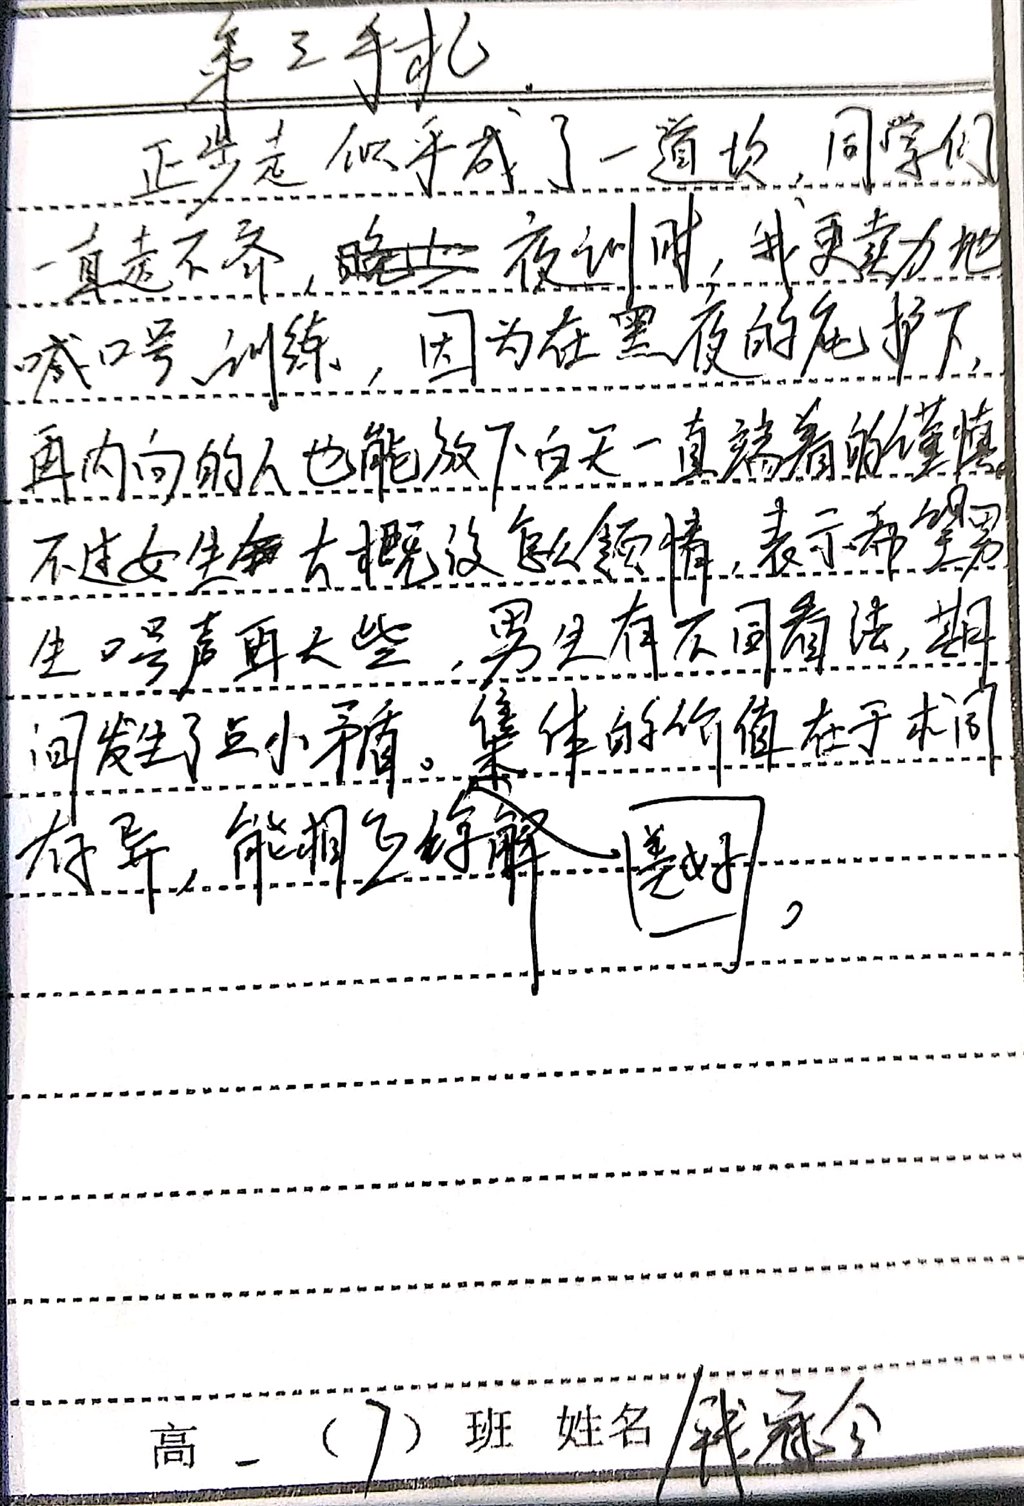 第三手札
正步走似乎成了一道坎,同学们
一直走不齐,夜训时,我更卖力地
喊口号、训练,因为在黑夜的庇护下,
再内向的人也能放下白天一直端着的谨慎。
不过女生大概没怎么领情,表示希望男
生口号声再大些,男生有不同看法,期
间发生了点小矛盾。集体的价值在于求同
存异,能相互谅解
。
高一(7)班 姓名